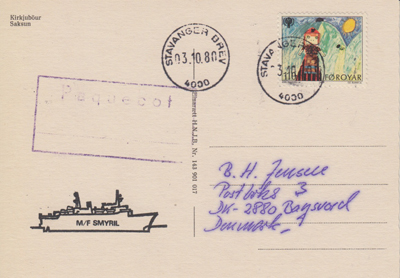 Kirkjubøur
Saksun
STAVANGER BREV
03.10.80
4000
STAVANGER
3.10.
4000
FØROYAR
Paquebot
H.N.J.B. Nr. 143 901 017
M/F SMYRIL
B. H. Jensen
Postboks 3
DK-2880, Bagsværd
Danmark